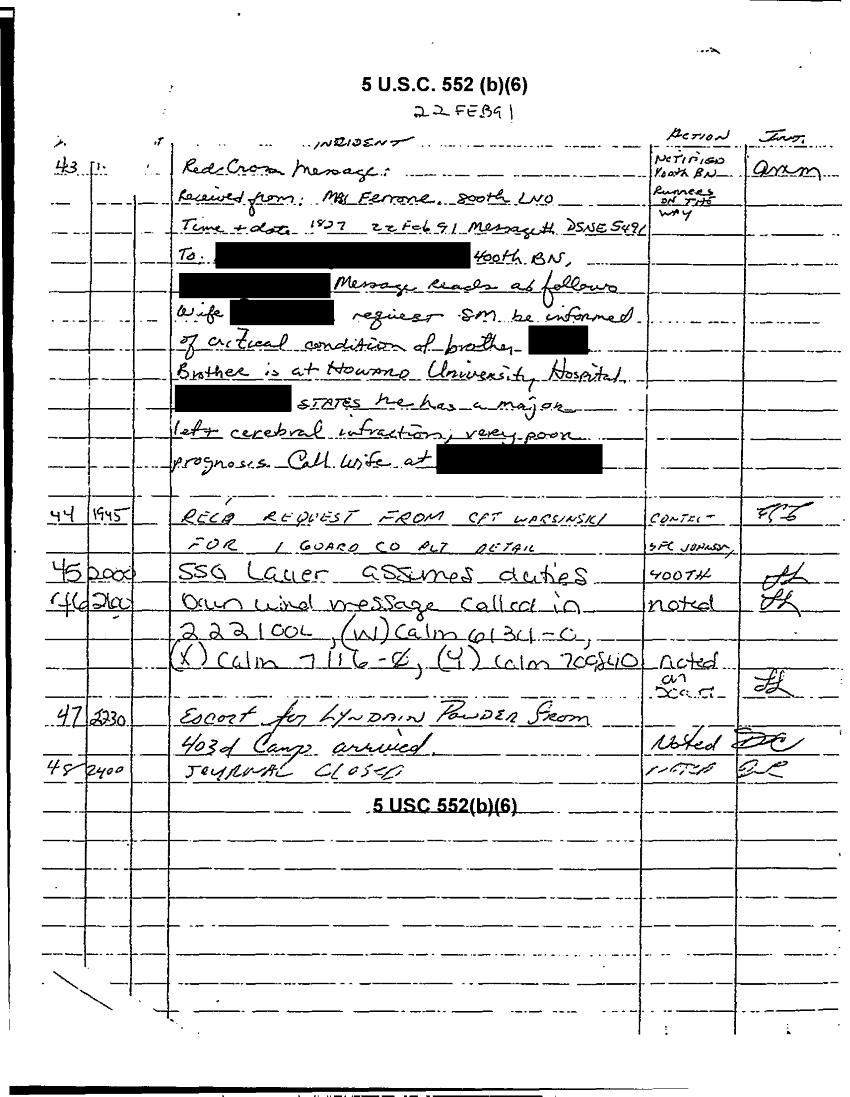 5 U.S.C. 552 (b)(6)
22 FEB 91
INCIDENT ACTION INT.
43 Red Cross Message: NOTIFIED 400th BN amm
Received from: Ferrone, 800th LNO Runners ON THE WAY
Time + date 1827 22 Feb 91 Message# DSNE5491
To: 400th BN,
Message reads as follows
Wife request SM be informed
of critical condition of brother
Brother is at Howard University Hospital
STATES he has a major
left cerebral infraction, very poor
prognosis. Call wife at
44 1945 REC'D REQUEST FROM CPT WARSINSKI CONTACT
FOR 1 GUARD CO PLT DETAIL SFC JOHNSON,
45 2000 SSG Lauer assumes duties 400TH
46 2100 Down wind message called in noted
222100Z, (W) Calm 6134-0,
(X) Calm 7116-0, (Y) Calm noted
on
47 2230 Escort for LYNDAIN POWDER from
403d Camp arrived. Noted
48 2400 JOURNAL CLOSED NOTED
5 USC 552(b)(6)